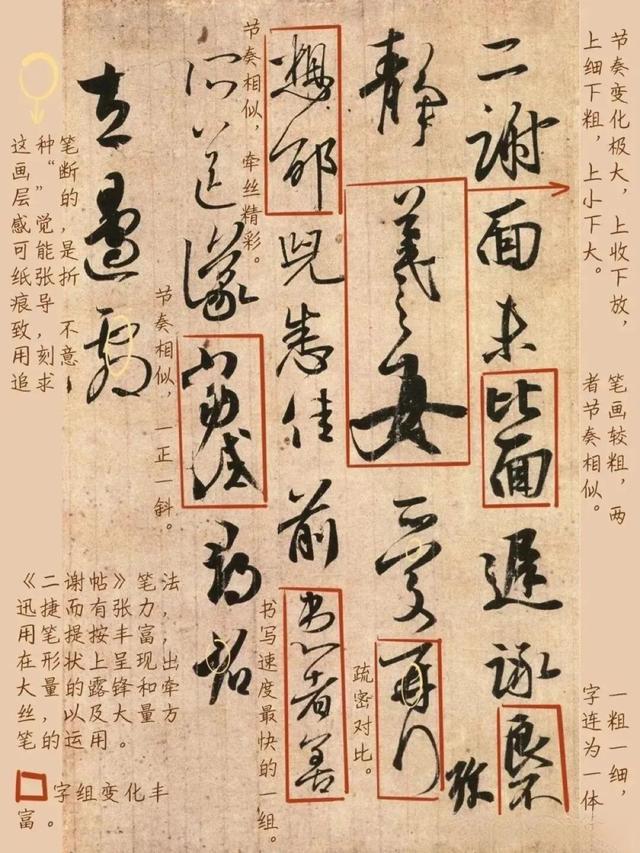 节奏变化极大，上收下放，
上细下粗，上小下大。
笔画较粗，两
者节奏相似。
一粗一细，
字连为一体
二謝面未比面遲詠良不
靜羲之女愛再拜
想邵兒悉佳前患者善
所送議當試尋省
左邊劇
节奏相似，牵丝精彩。
疏密对比。
书写速度最快的一组。
节奏相似，一正一斜。
这种笔
画“断
层”的
感觉，
可能是
纸张折
痕导
致，不
用刻意
追求
《二谢帖》笔法
迅捷而有张力，
用笔提按丰富，
在形状上呈现出
大量的露锋和牵
丝，以及大量方
笔的运用。
字组变化丰
富。